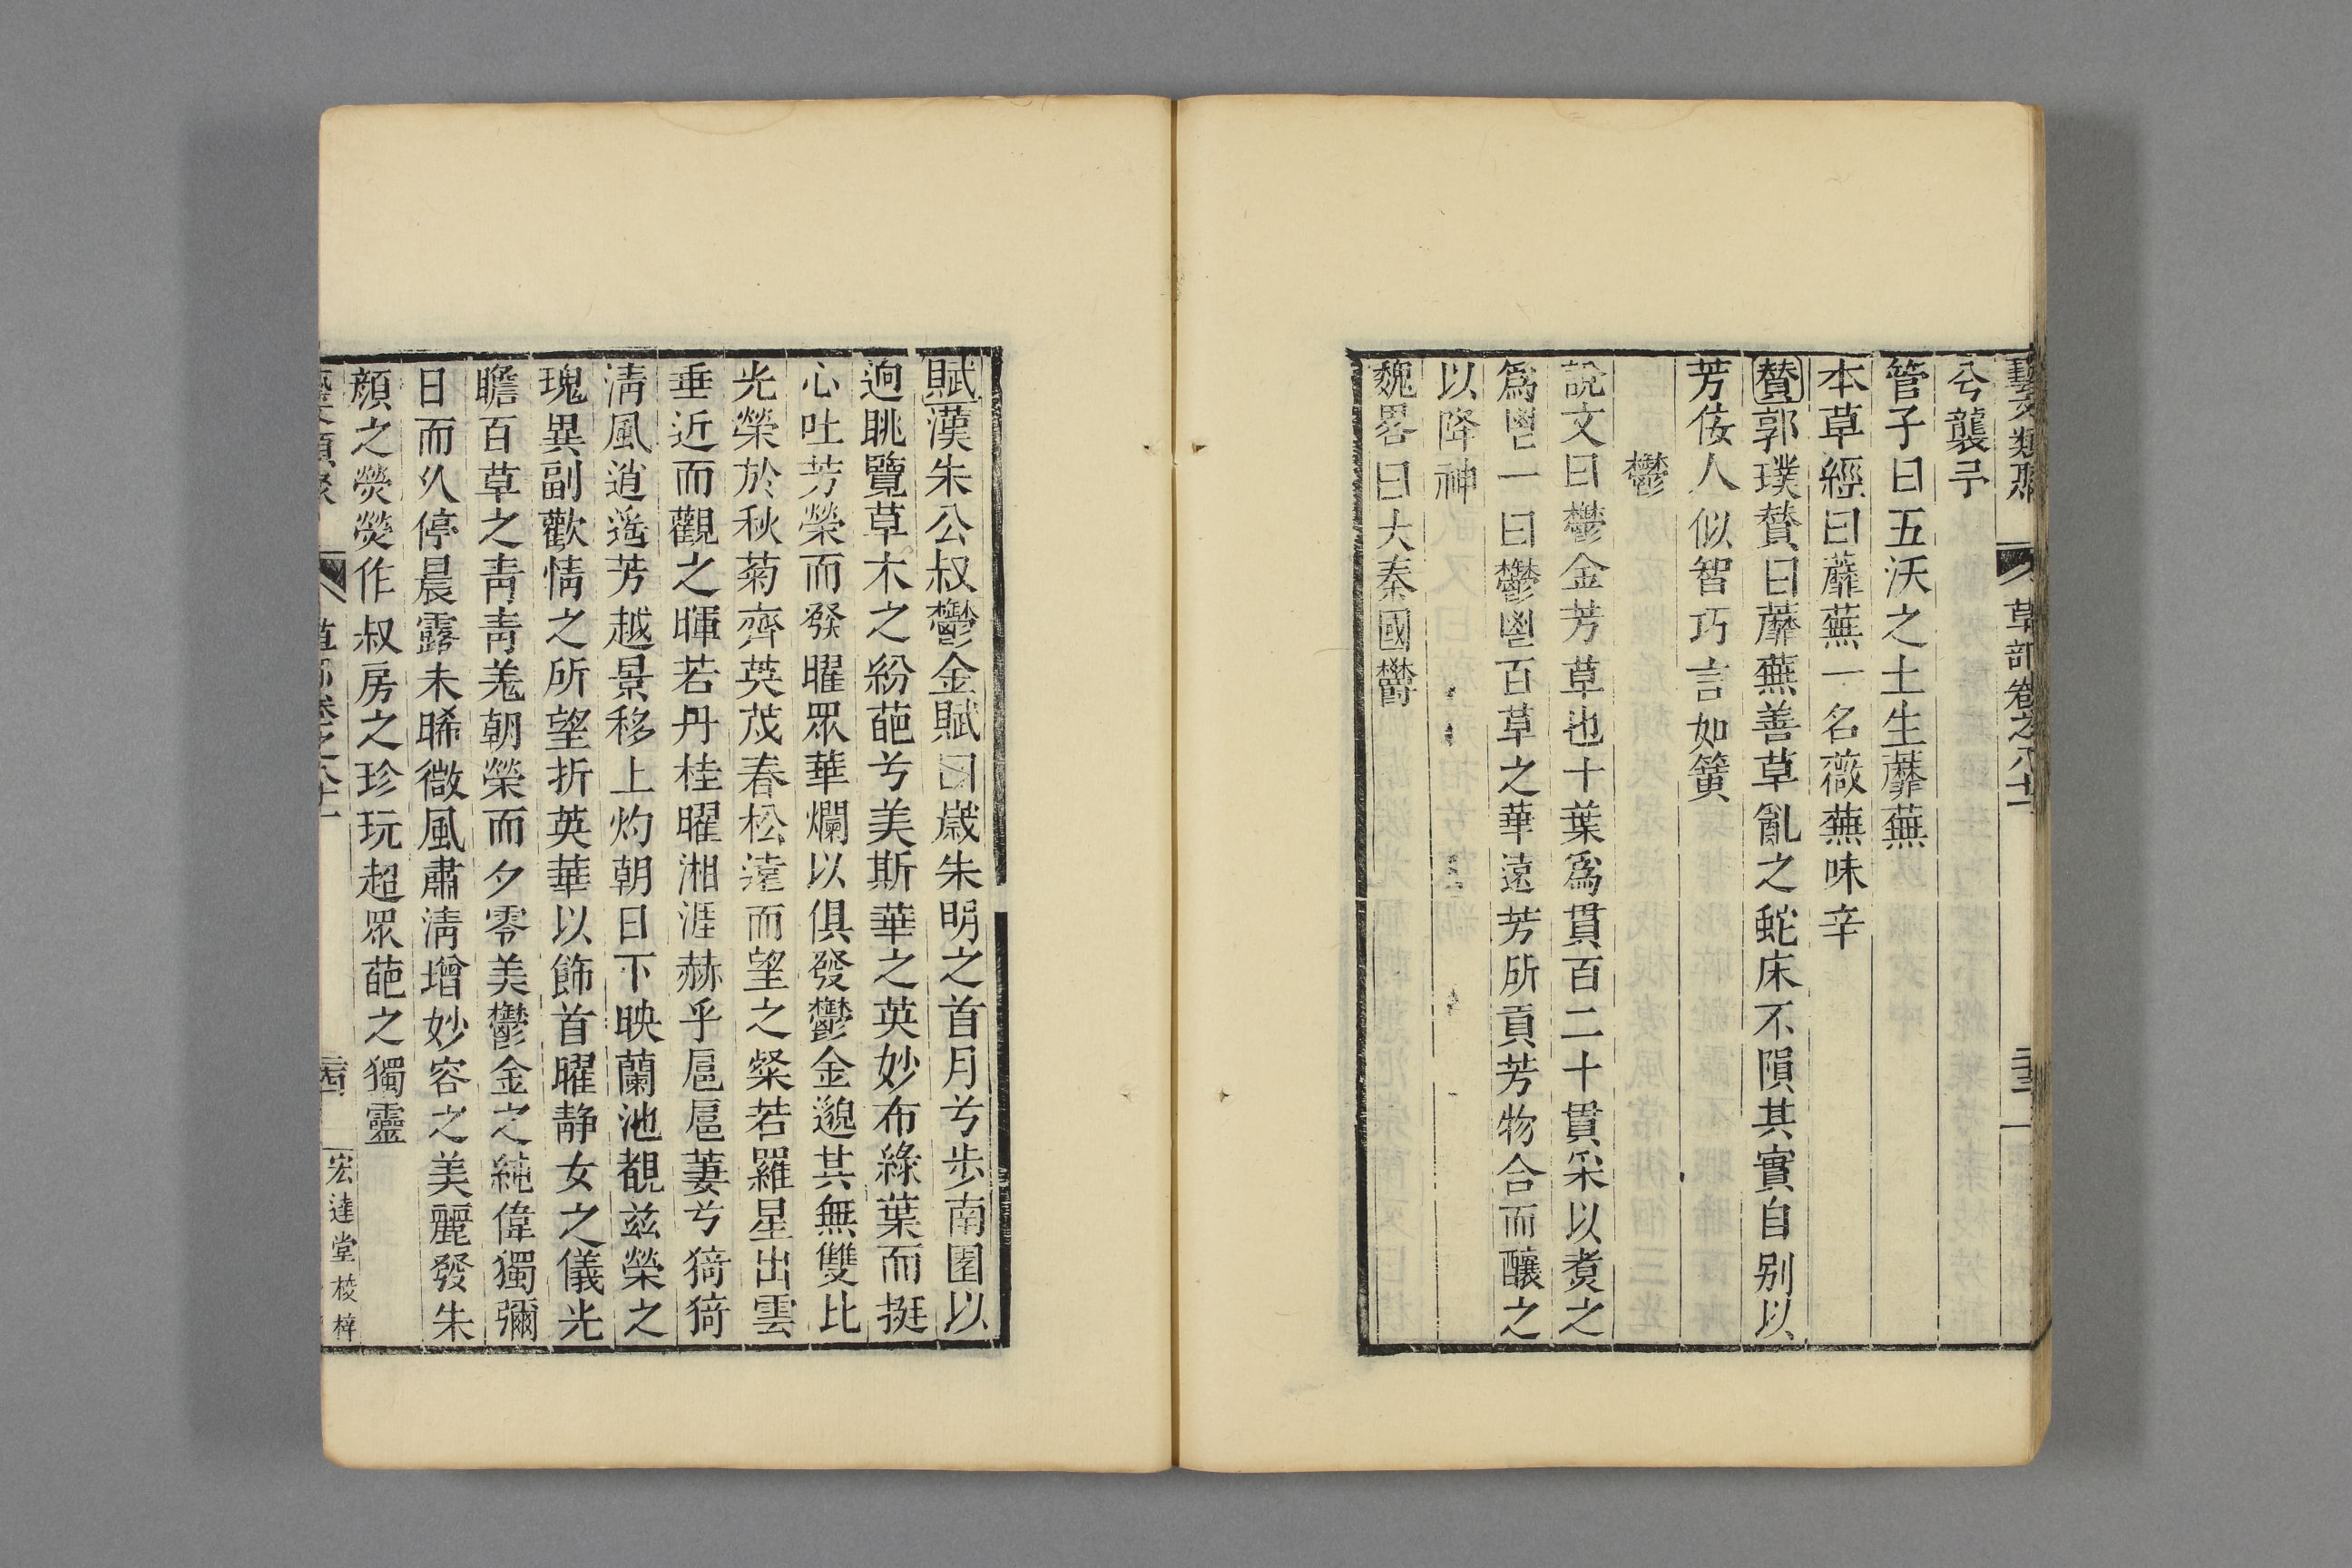 藝文類聚 草部卷之八十一
兮襲予
管子曰五沃之土生蘼蕪
本草經曰蘼蕪一名薇蕪味辛
贊郭璞贊曰蘼蕪善草亂之蛇床不隕其實自别以
芳佞人似智巧言如簧
鬱
說文曰鬱金芳草也十葉爲貫百二十貫采以煮之
爲鬯一曰鬱鬯百草之華遠芳所貢芳物合而釀之
以降神
魏畧曰大秦國鬱
賦漢朱公叔鬱金賦曰歲朱明之首月兮步南園以
逈眺覽草木之紛葩兮美斯華之英妙布綠葉而挺
心吐芳榮而發曜眾華爛以俱發鬱金邈其無雙比
光榮於秋菊齊英茂春松遠而望之粲若羅星出雲
垂近而觀之暉若丹桂曜湘涯赫乎扈扈萋兮猗猗
淸風逍遙芳越景移上灼朝日下映蘭池覩茲榮之
瑰異副歡情之所望折英華以飾首曜静女之儀光
瞻百草之靑靑羌朝榮而夕零美鬱金之純偉獨彌
日而久停晨露未晞微風肅淸增妙容之美麗發朱
顔之熒熒作叔房之珍玩超眾葩之獨靈
藝文類聚 草部卷之八十一 宏達堂校梓